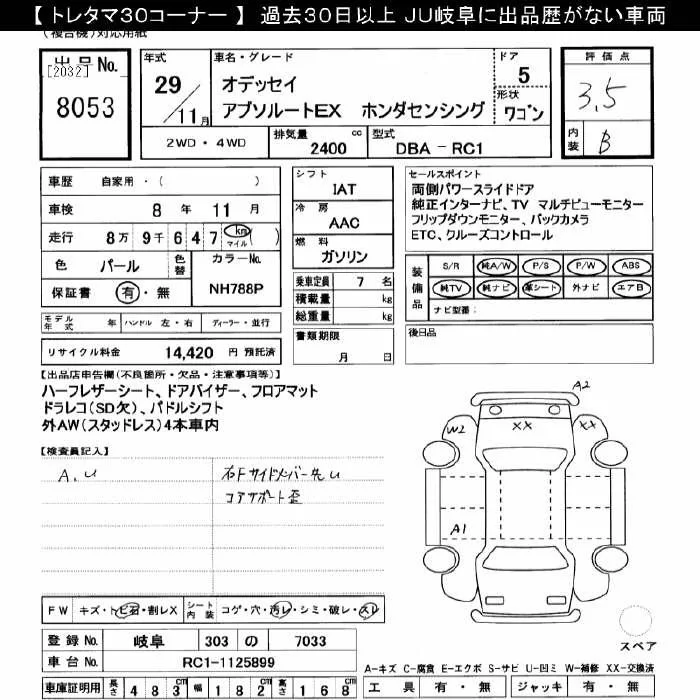 【トレタマ30コーナー】 過去30日以上 JU岐阜に出品歴がない車両
(複合機)対応用紙
出品No.
[2032]
8053
年式
29/11月
車名・グレード
オデッセイ
アブソルートEX ホンダセンシング
ドア
5
形状
ワゴン
評価点
3.5
内装
B
2WD・4WD
排気量
2400 cc
型式
DBA-RC1
車歴 自家用・( )
車検 8年 11月
走行 8万 9千 6 4 7 km マイル ( )
色 パール 色替
カラーNo. NH788P
保証書 有・無
モデル年式 年 ハンドル 左・右 ディーラー・並行
リサイクル料金 14,420 円 預託済
シフト
IAT
冷房
AAC
燃料
ガソリン
乗車定員 7 名
積載量 kg
総重量 kg
書類期限
月 日
セールスポイント
両側パワースライドドア
純正インターナビ、TV マルチビューモニター
フリップダウンモニター、バックカメラ
ETC、クルーズコントロール
装備品
S/R 純A/W P/S P/W ABS
純TV 純ナビ 革シート 外ナビ エアB
ナビ型番:
後日品
【出品店申告欄(不良箇所・欠品・注意事項等)】
ハーフレザーシート、ドアバイザー、フロアマット
ドラレコ(SD欠)、パドルシフト
外AW(スタッドレス)4本車内
【検査員記入】
A.U
右Fサイドメンバー先U
コアサポート歪
A2
W2
XX
XX
A1
スペア
FW キズ・トビ石・割レX
シート内装 コゲ・穴・汚レ・シミ・破レ・スレ
登録No. 岐阜 303 の 7033
車台No. RC1-1125899
車庫証明用 長さ 483cm 幅 182cm 高さ 168cm
A-キズ C-腐食 E-エクボ S-サビ U-凹ミ W-補修 XX-交換済
工具 有・無 ジャッキ 有・無